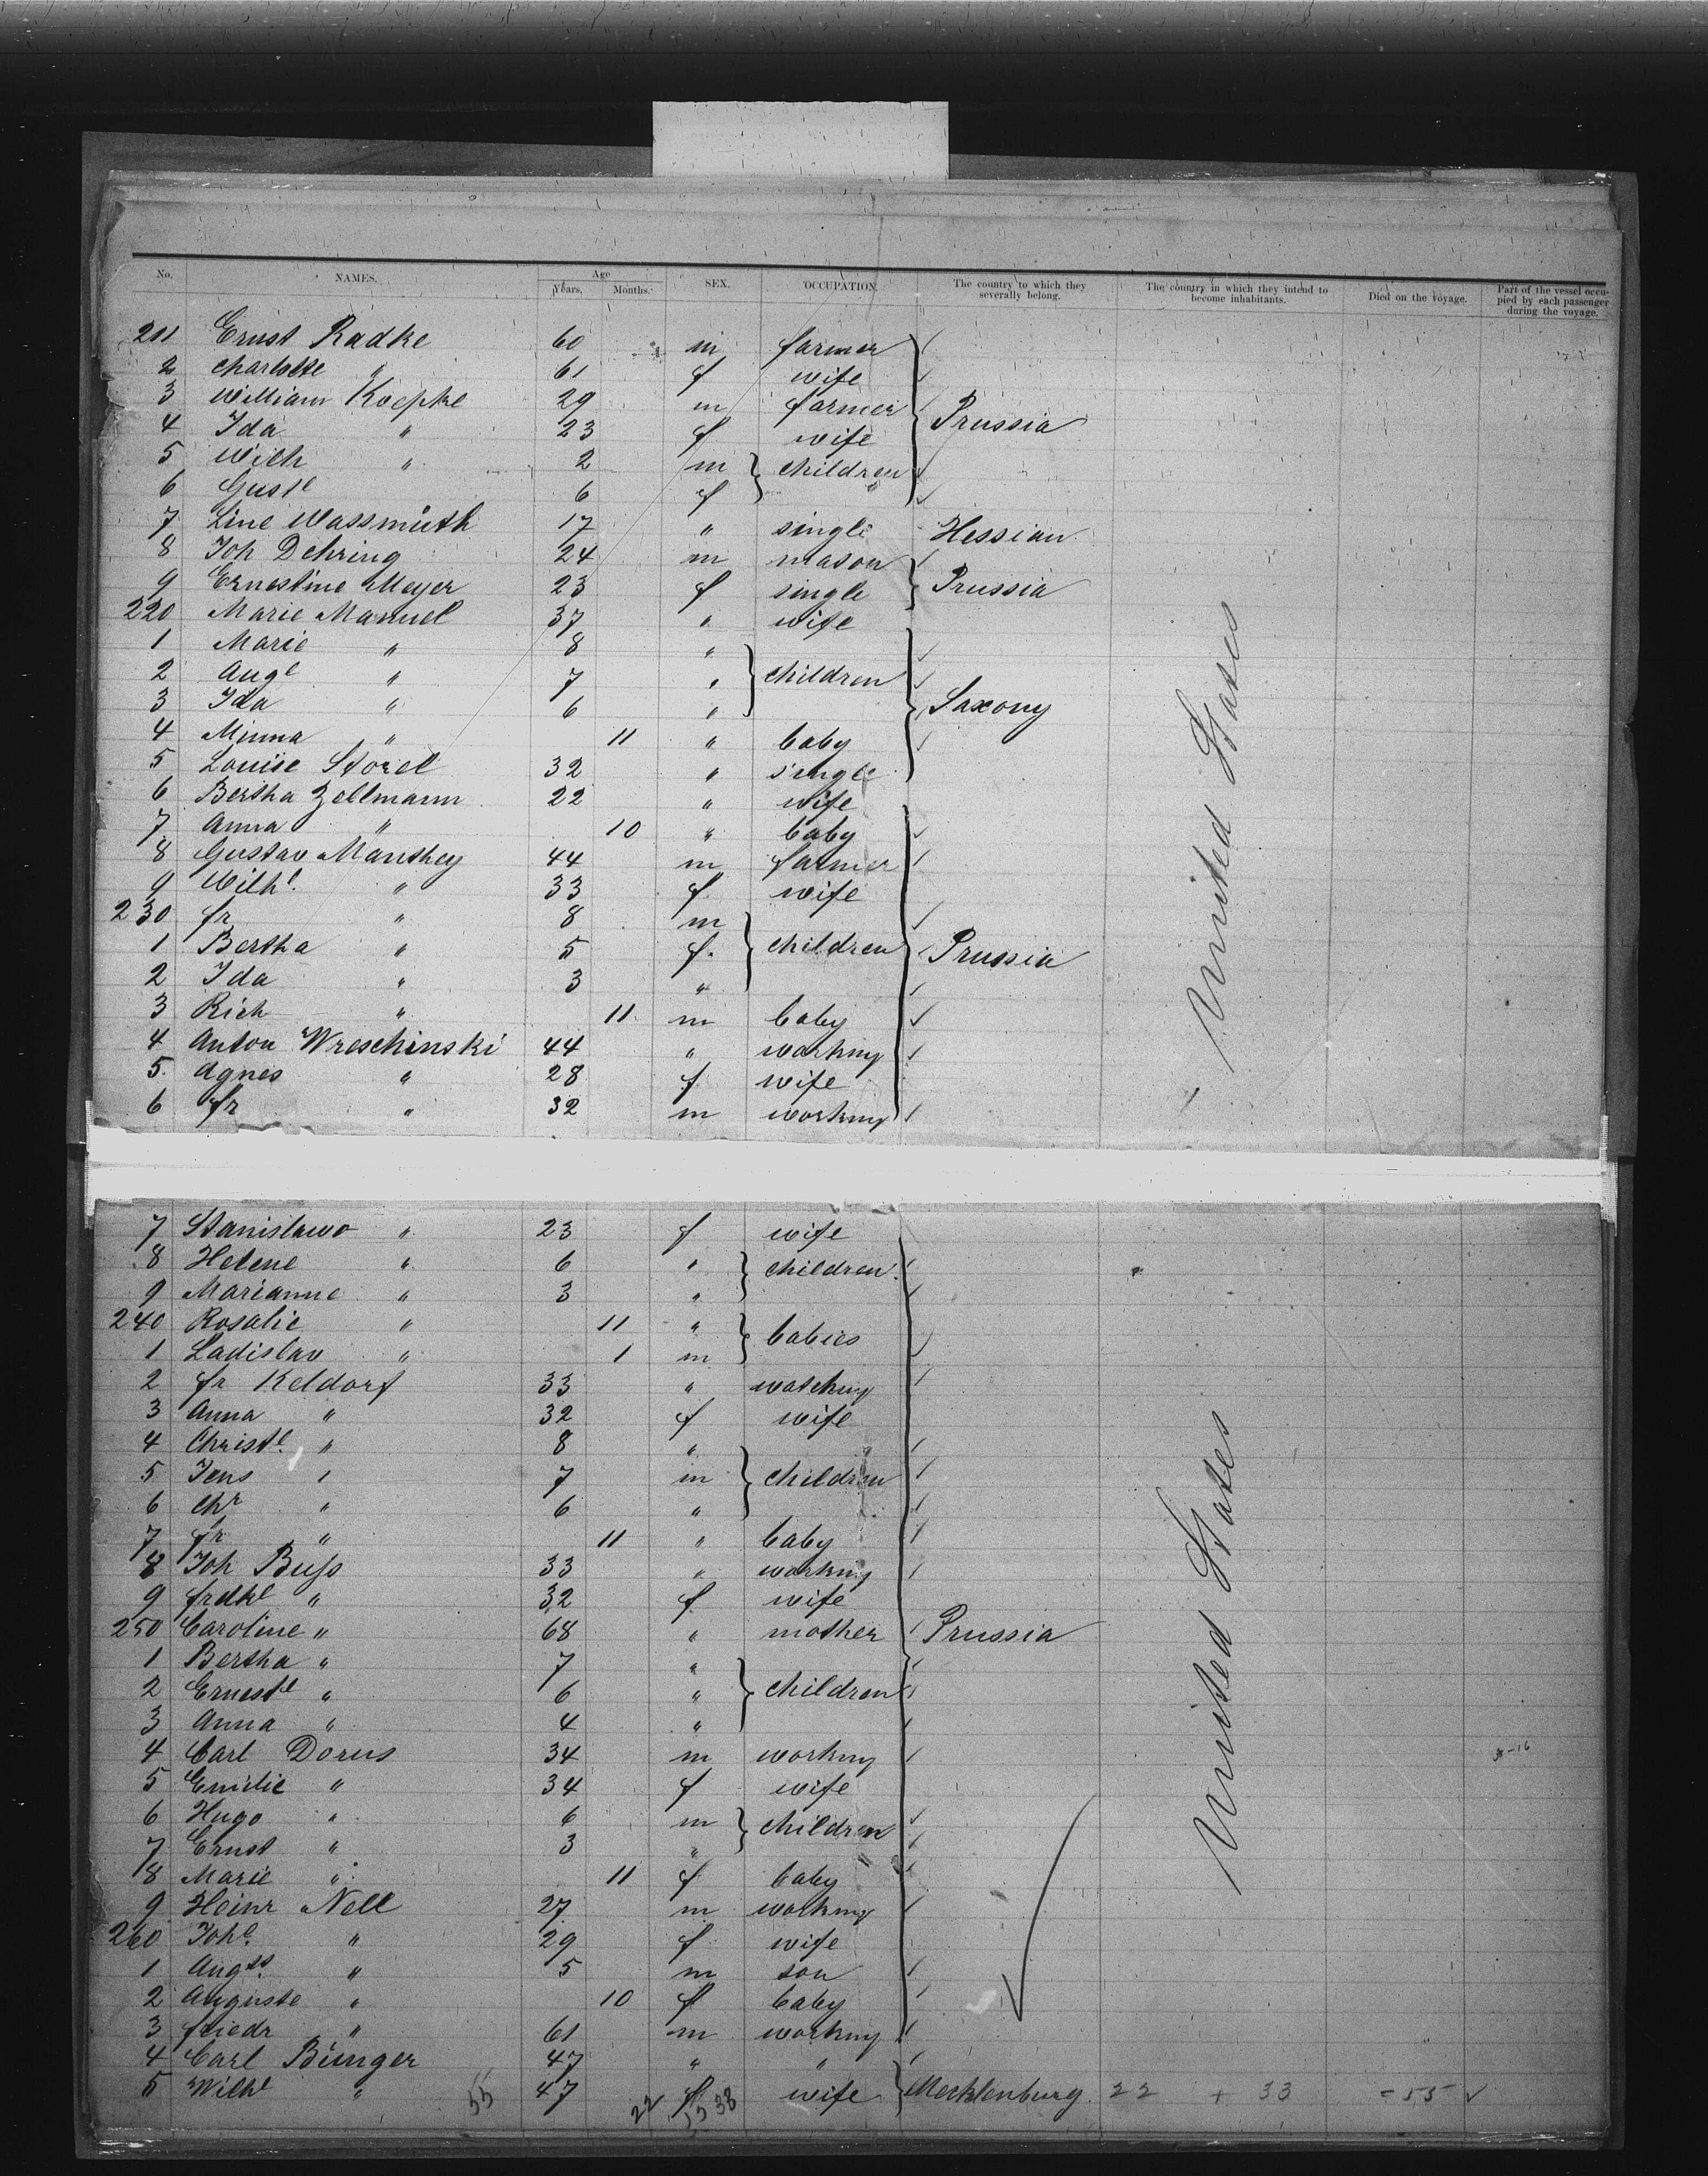 No. NAMES. Age Years. Months. SEX. OCCUPATION. The country to which they severally belong. The country in which they intend to become inhabitants. Died on the voyage. Part of the vessel occupied by each passenger during the voyage.
211 Ernst Radke 60 m farmer
2 Charlotte " 61 f wife
3 William Koepke 29 m farmer Prussia
4 Ida " 23 f wife
5 Wilh " 2 m children
6 Gust^e 6 f "
7 Line Wassmuth 17 " single Hessian
8 Joh Dehring 24 m mason
9 Ernestine Meyer 23 f single Prussia
220 Marie Manuel 37 " wife
1 Marie " 8 "
2 Aug^e " 7 " children
3 Ida " 6 " Saxony
4 Minna " 11 " baby
5 Louise Storel 32 " single
6 Bertha Zellmann 22 " wife
7 Anna " 10 " baby
8 Gustav Manthey 44 m farmer
9 Wilh^e " 33 f wife
230 fr " 8 m
1 Bertha " 5 f. children Prussia
2 Ida " 3 "
3 Rich " 11 m baby
4 Anton Wreschinski 44 " working
5 Agnes " 28 f wife
6 fr " 32 m working
United States
7 Stanislawo " 23 f wife
8 Helene " 6 " children
9 Marianne " 3 "
240 Rosalie " 11 " babies
1 Ladislav " 1 m
2 fr Keldorf 33 " working
3 Anna " 32 f wife
4 Christ^e " 8 "
5 Jens " 7 m children
6 Ch^r " 6 "
7 fr " 11 " baby
8 Joh Buss 33 " working
9 frdk^e " 32 f wife
250 Caroline " 68 " mother Prussia
1 Bertha " 7 "
2 Ernest^e " 6 " children
3 Anna " 4 "
4 Carl Dorus 34 m working
5 Emilie " 34 f wife
6 Hugo " 6 m children
7 Ernst " 3 "
8 Marie " 11 f baby
9 Heinr Nell 27 m working
260 Joh^e " 29 f wife
1 Aug^st " 5 m son
2 Auguste " 10 f baby
3 friedr " 61 m working
4 Carl Bünger 47 " "
5 Wilh^e " 47 f wife Mecklenburg 22 + 33 = 55
55 22 33
United States